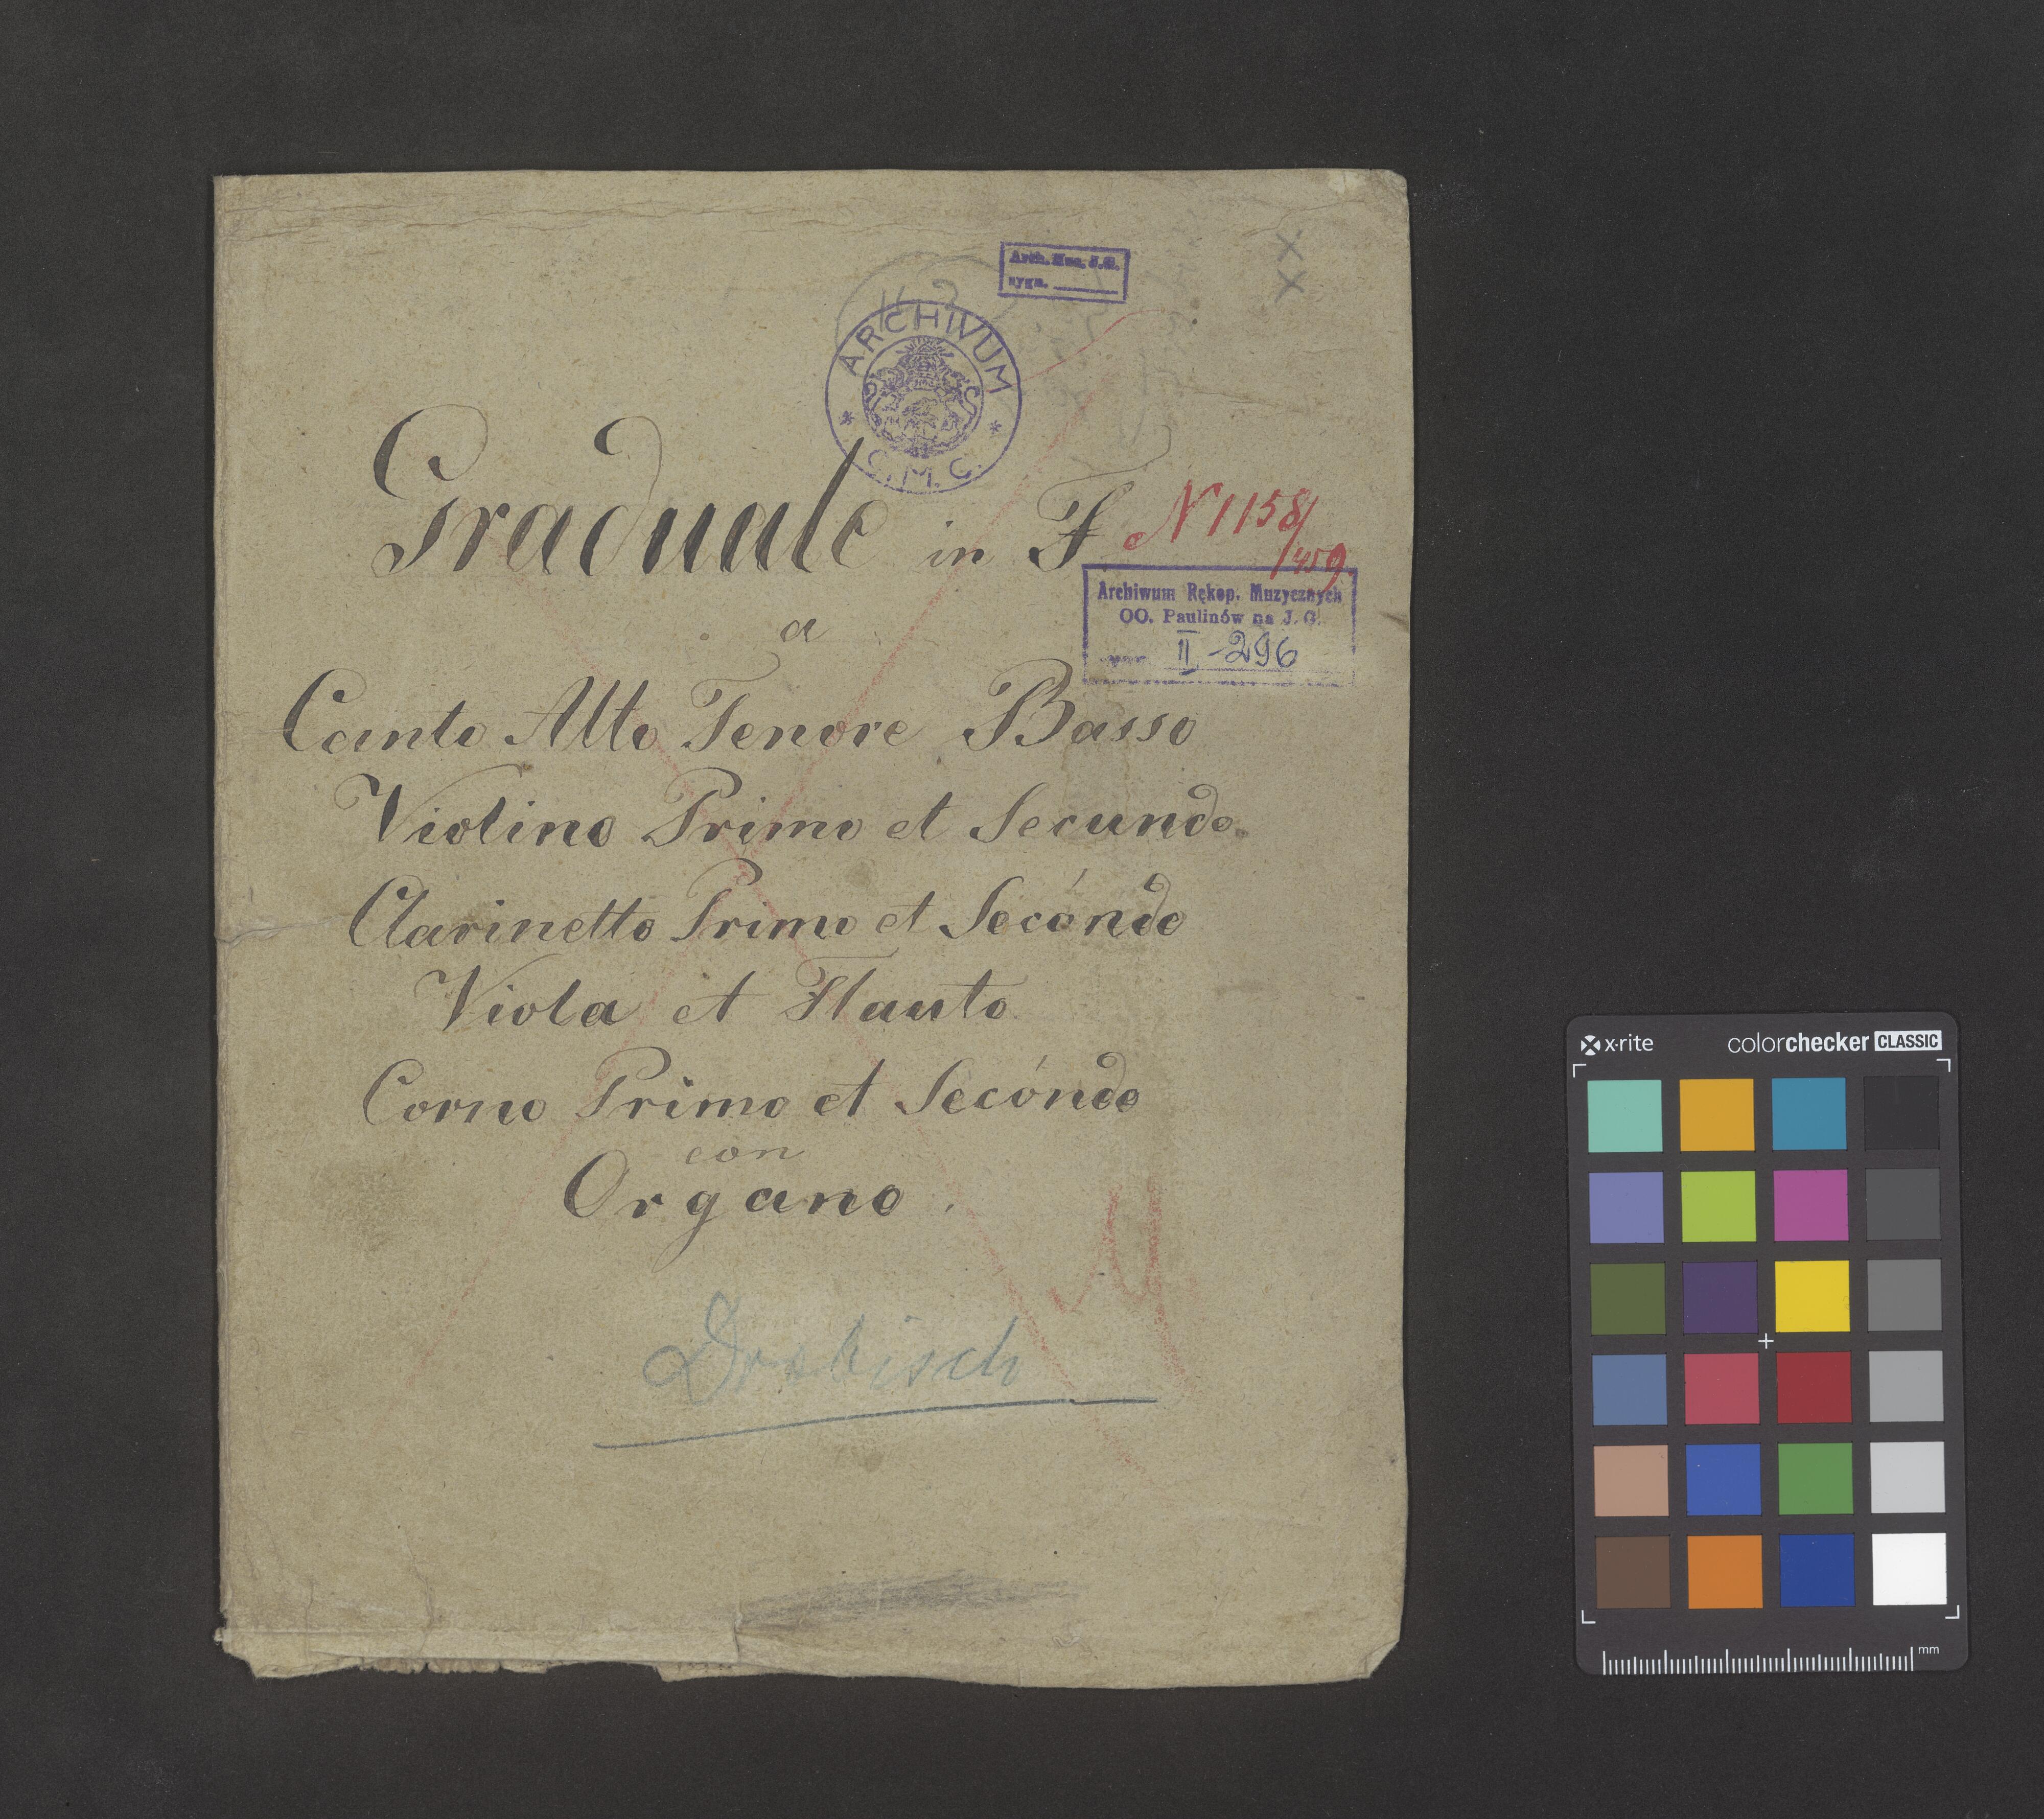 Arch. Muz. J.G.
sygn.
ARCHIVUM
C. M. C.
Graduale in F
N 1158/
/459.
a
Archiwum Rękop. Muzycznych
OO. Paulinów na J. G.
II-296
Canto Alto Tenore Basso
Violino Primo et Secundo.
Clarinetto Primo et Secóndo
Viola et Flauto
Corno Primo et Secóndo
con
Organo.
Drobisch
x·rite
colorchecker CLASSIC
mm